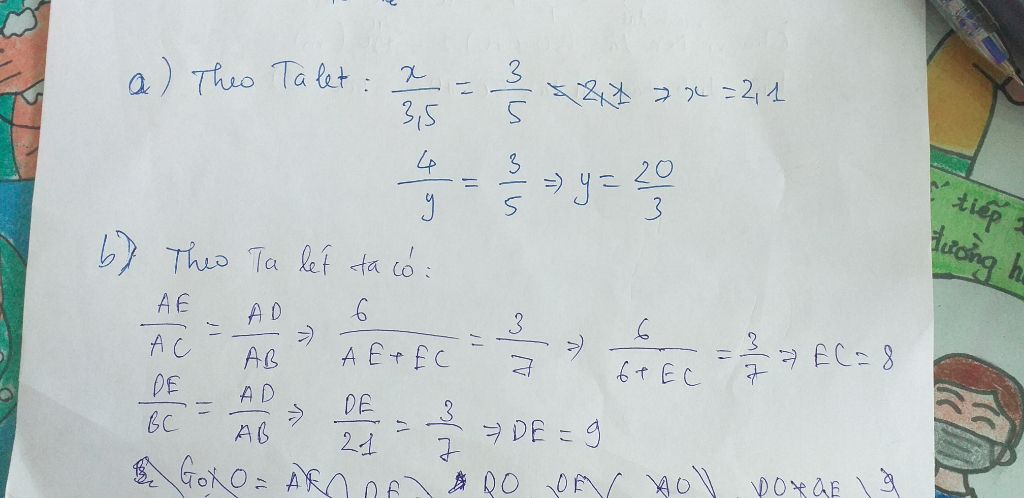 a) Theo Talet : x/3,5 = 3/5 = 2,1 ⇒ x = 2,1
4/y = 3/5 ⇒ y = 20/3
b) Theo Ta lét ta có :
AE/AC = AD/AB ⇒ 6/AE+EC = 3/7 ⇒ 6/6+EC = 3/7 ⇒ EC = 8
DE/BC = AD/AB ⇒ DE/21 = 3/7 ⇒ DE = 9
Gọi O =
tiếp
đường